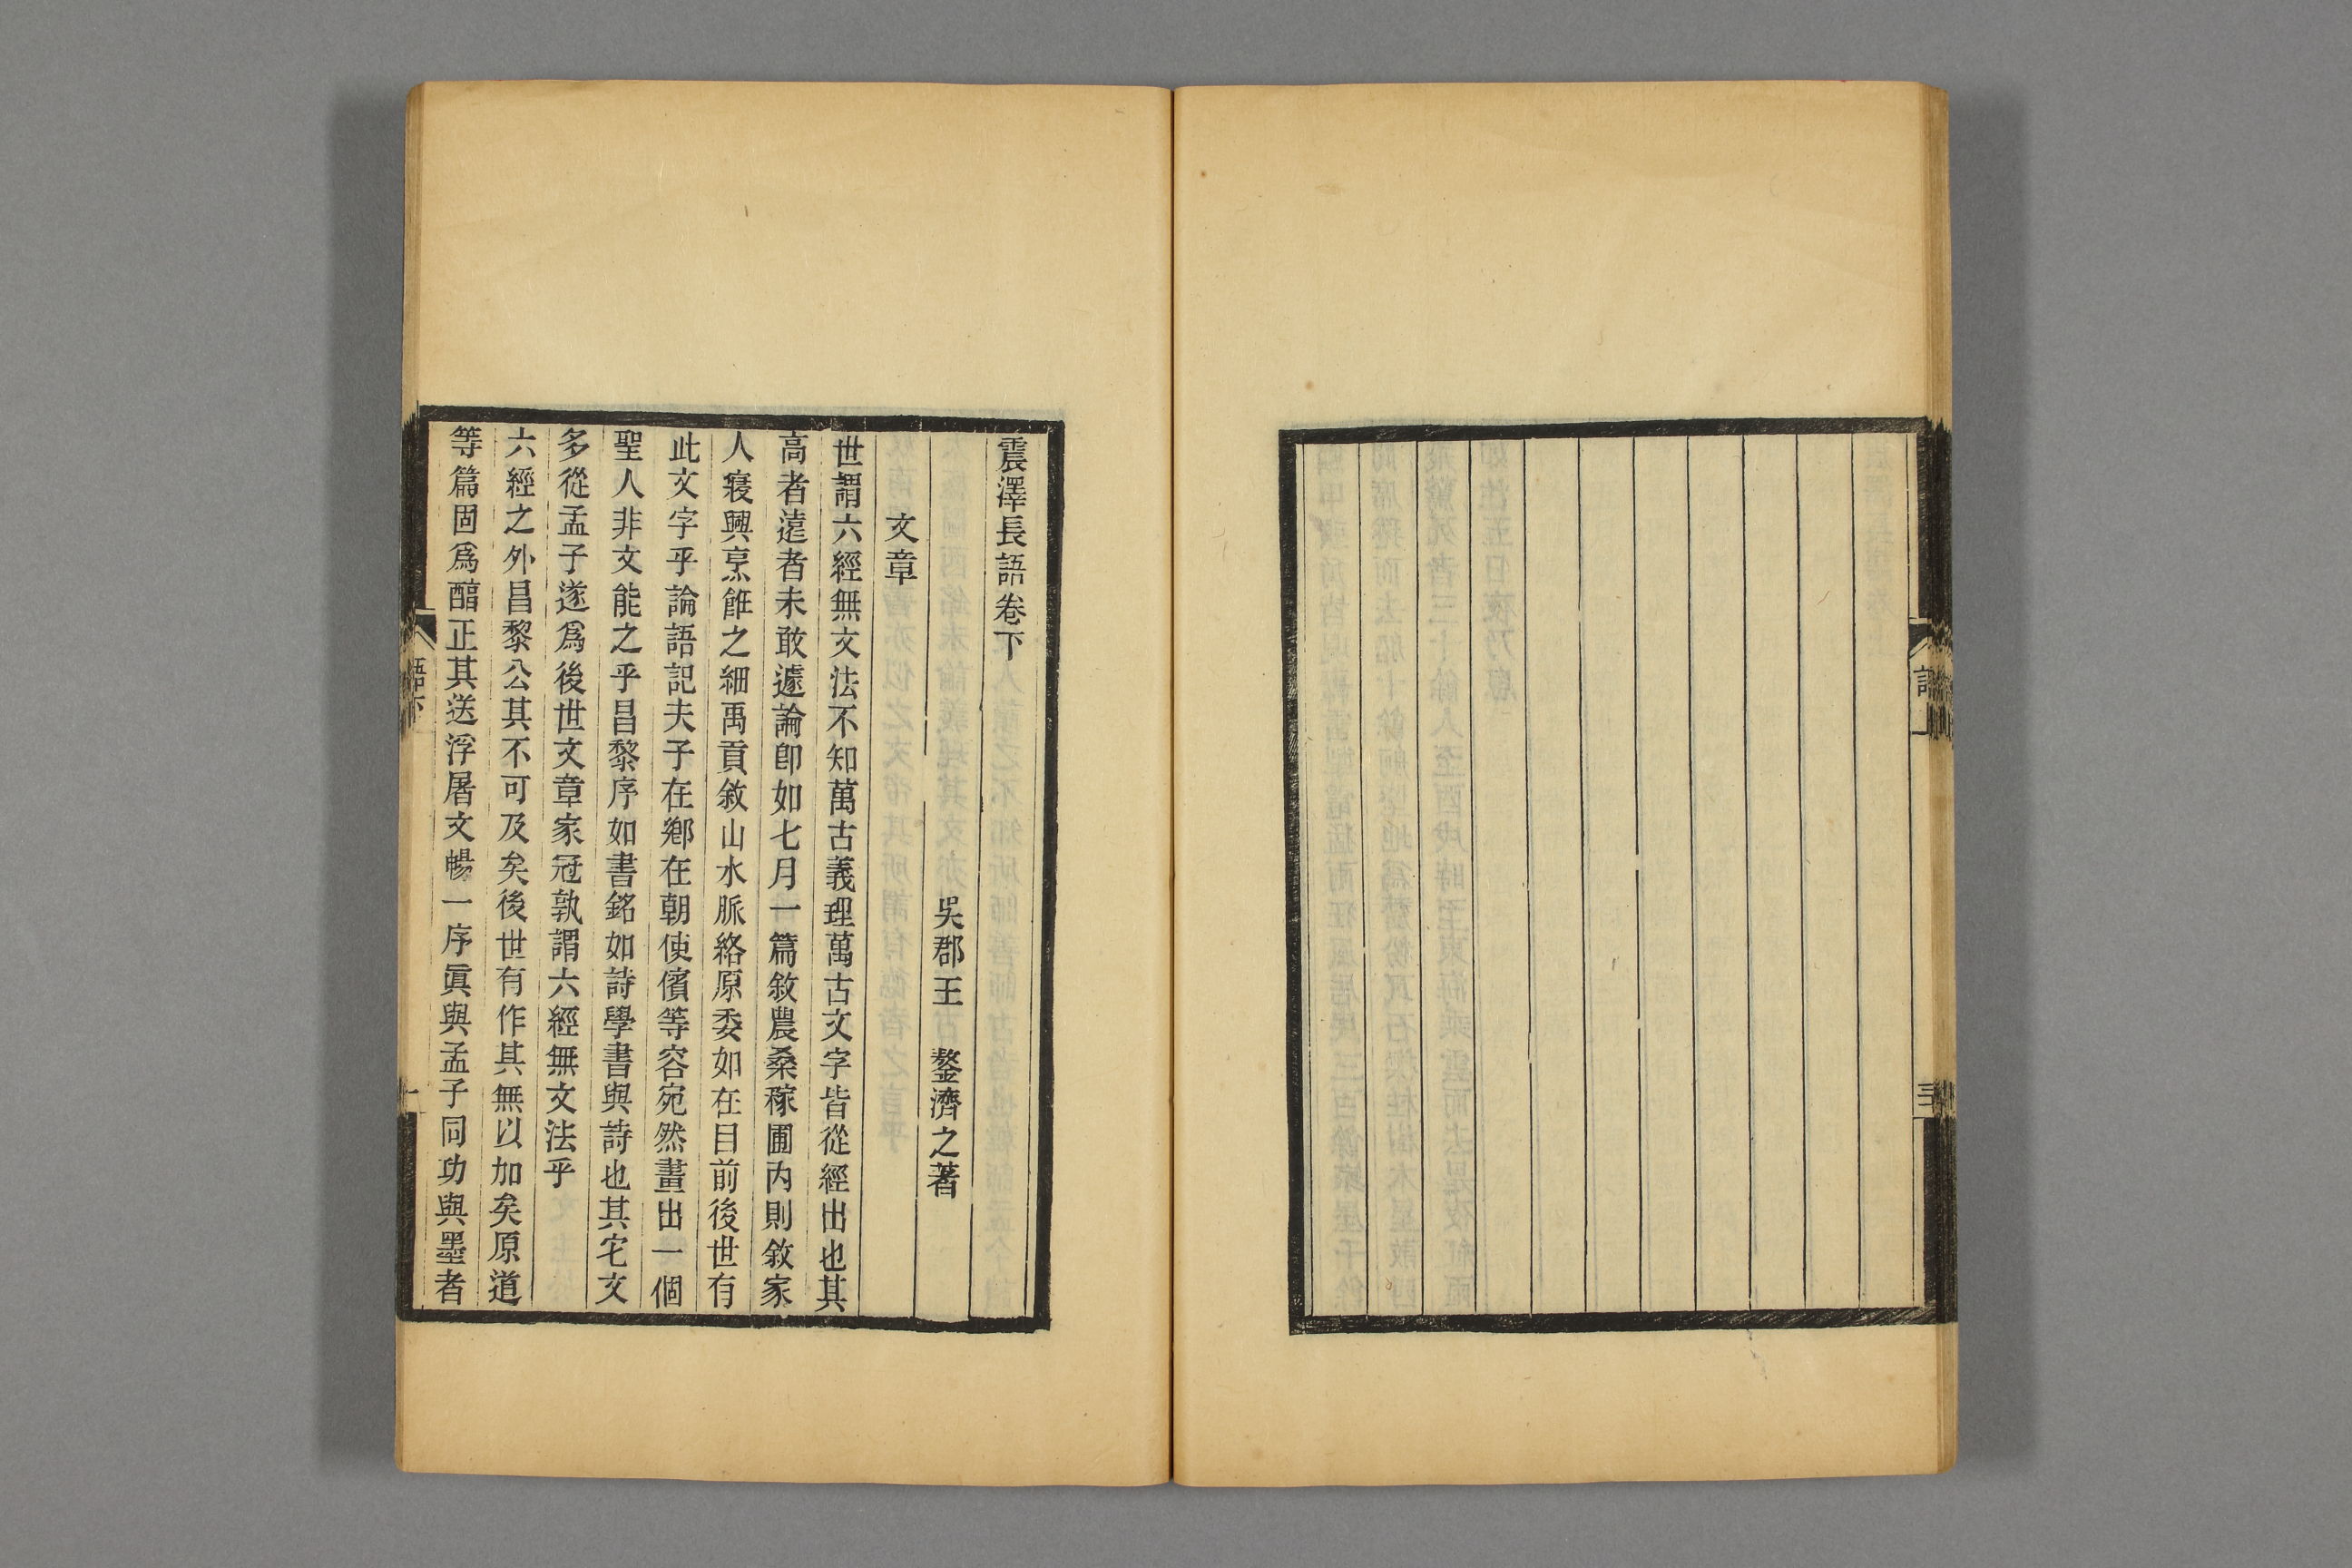 震澤長語卷下
吳郡王 鏊濟之著
文章
世謂六經無文法不知萬古義理萬古文字皆從經出也其
高者遠者未敢遽論卽如七月一篇敘農桑稼圃內則敘家
人寢興烹飪之細禹貢敘山水脈絡原委如在目前後世有
此文字乎論語記夫子在鄉在朝使儐等容宛然畫出一個
聖人非文能之乎昌黎序如書銘如詩學書與詩也其它文
多從孟子遂爲後世文章家冠孰謂六經無文法乎
六經之外昌黎公其不可及矣後世有作其無以加矣原道
等篇固爲醇正其送浮屠文暢一序眞與孟子同功與墨者
語下
一